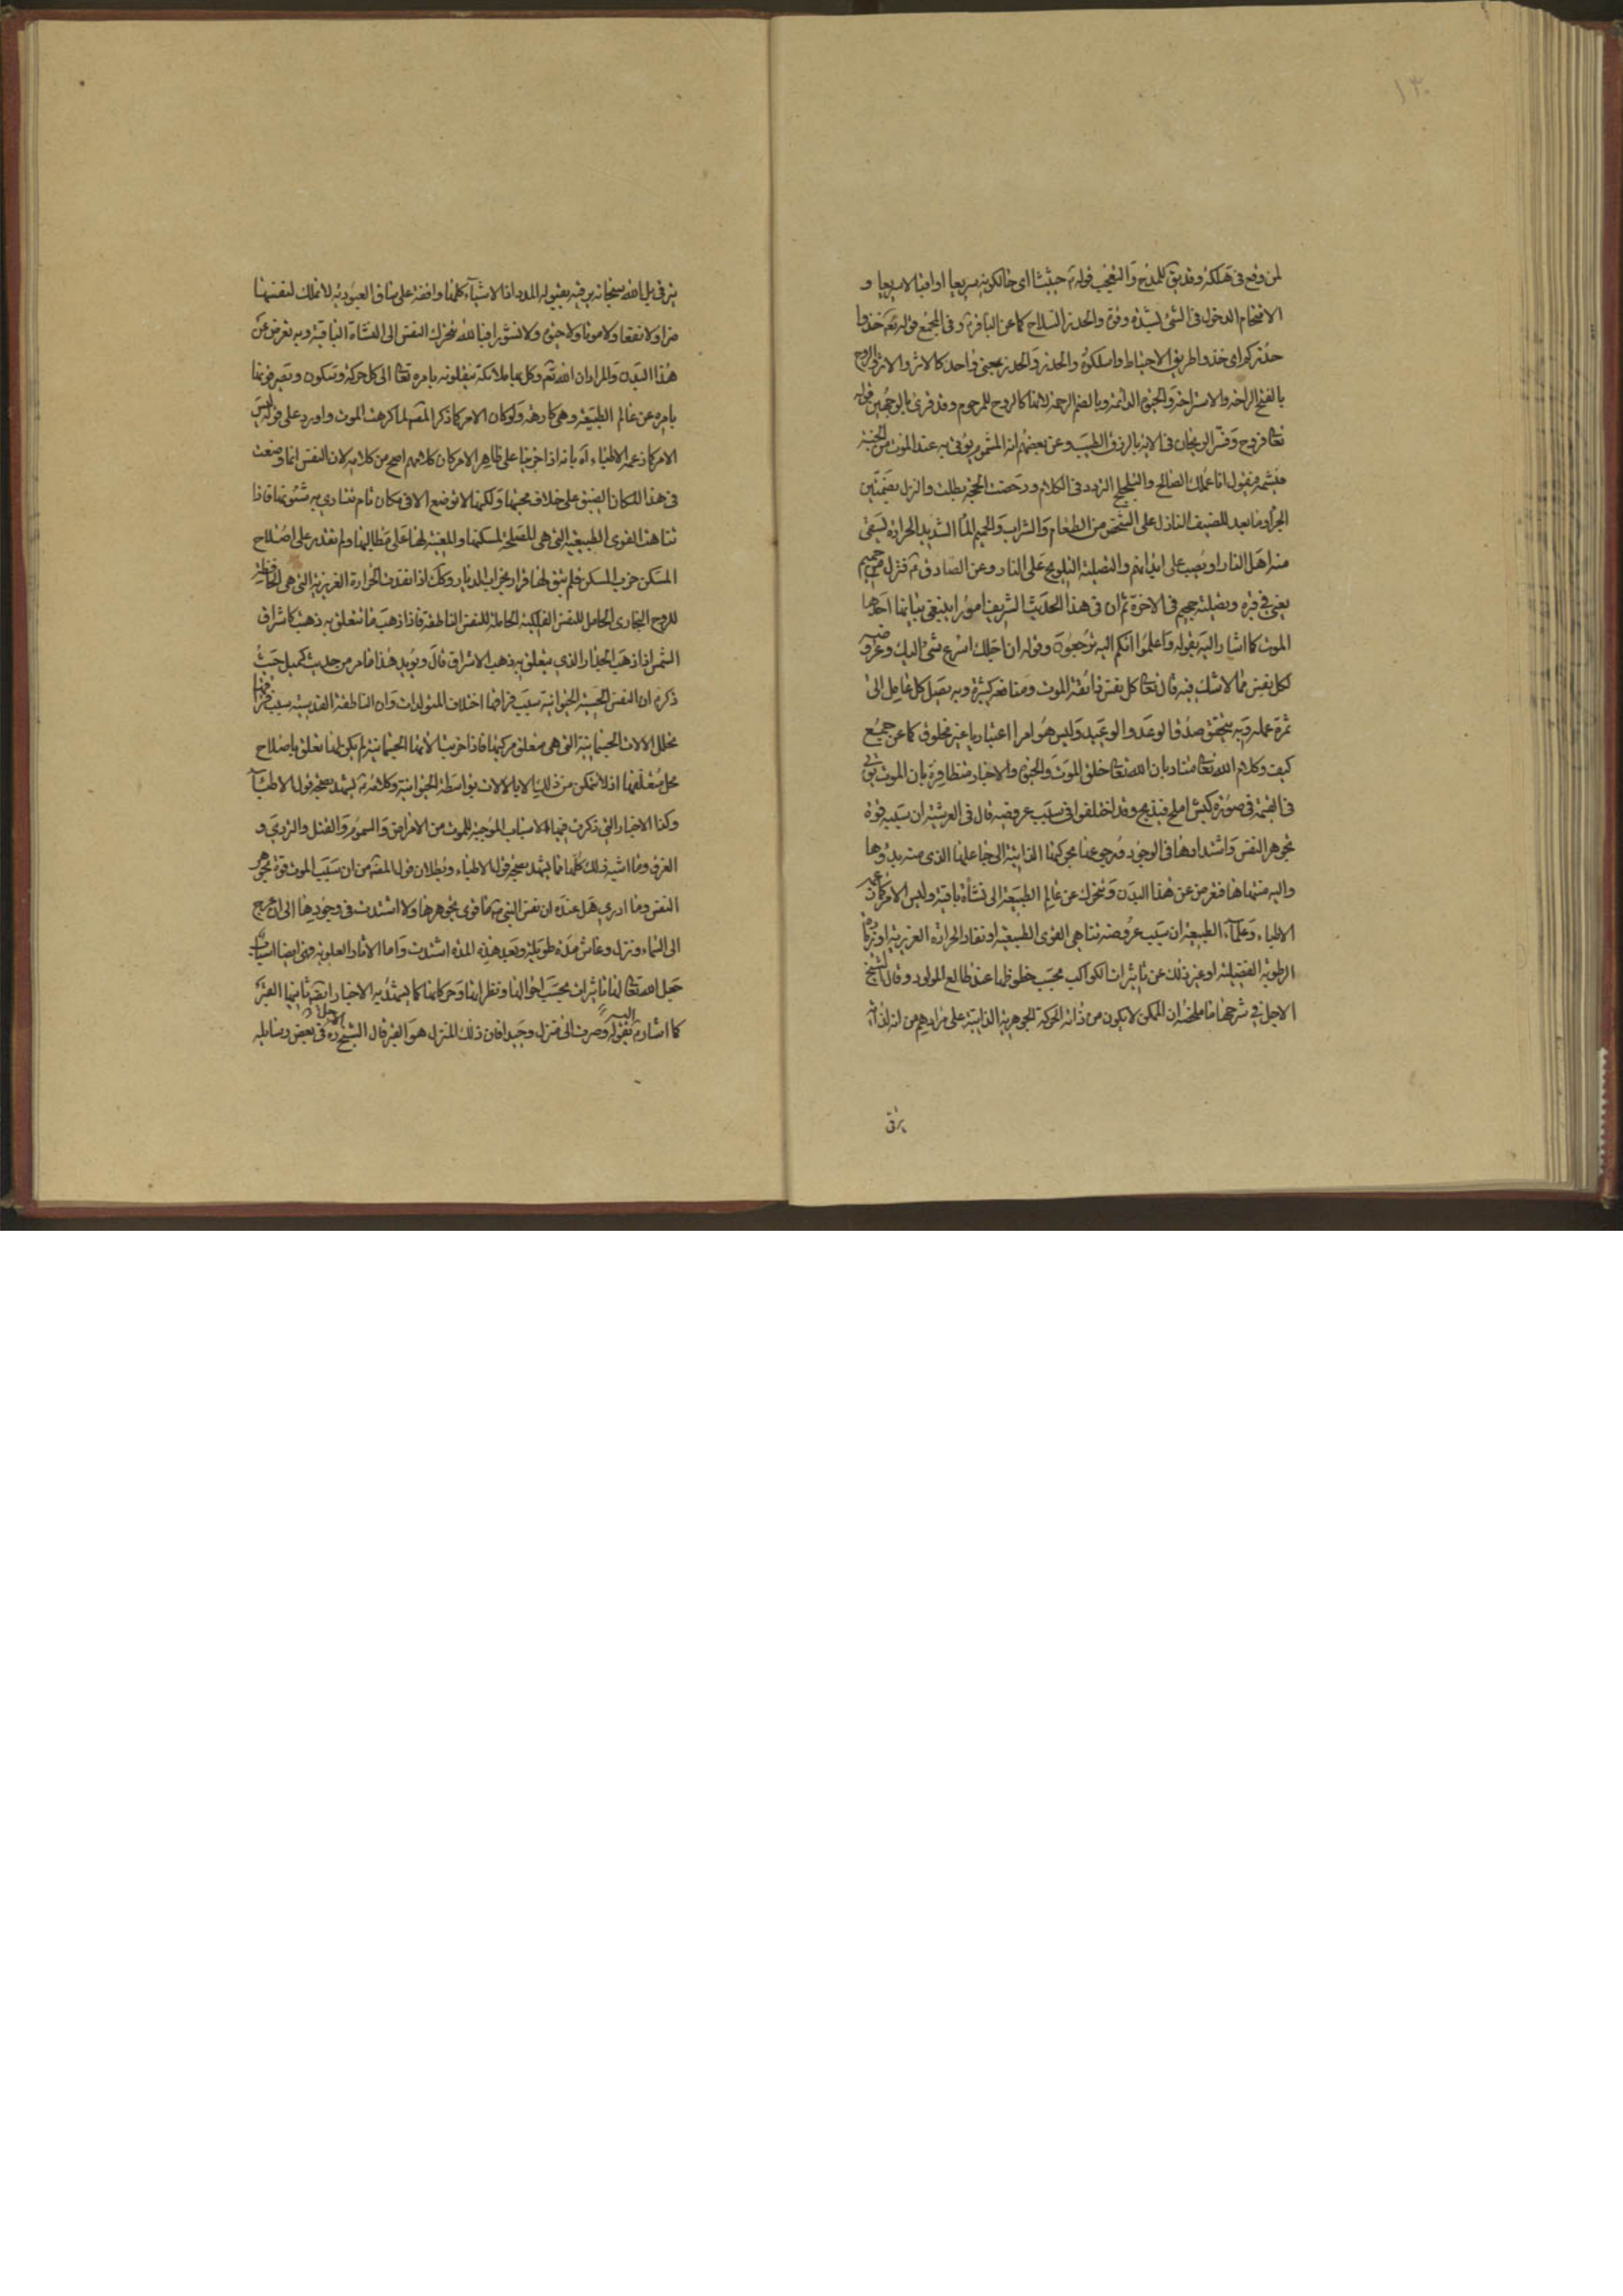 ١٣٠
لمن وقع في هلكة وقد يق للمدح والتعجب قوله حثيثا اى حالكونه سريعا او اقبالا سريعا و
الاقتحام الدخول في الشئ بشدة وقوة والحذر السلاح كما عن الباقر وفي المجمع قوله تعم خذوا
حذركم اى خذوا طريق الاحتياط واسلكوه والحذر والحذر بمعنى واحد كالاثر والاثر الروح
بالفتح الراحة والاستراحة والحيوة الدائمة وبالضم الرحمة لانها كالروح للمرحوم وقد قرئ بالوجهين قوله
تعا فروح وفسر الريحان في الاية بالرزق الطيب وعن بعضهم انه المشموم يؤتى به عند الموت من الجنة
فيشمه فيقول انا عملك الصالح والتلجلج التردد في الكلام ودحضت الحجة بطلت والنزل بضمتين
ما يعد للضيف النازل على الشخص من الطعام والشراب والحميم الماء الشديد الحرارة يسقى
منه اهل النار او يصب على ابدانهم والتصلية التلويح على النار وعن الصادق فنزل من حميم
يعنى في قبره وتصلية جحيم في الاخرة ثم ان في هذا الحديث الشريف امورا ينبغي بيانها احدها
الموت كما اشار اليه بقوله واعلموا انكم اليه ترجعون وقوله ان اجلك اسرع شئ اليك وعروضه
لكل نفس مما لا شك فيه قال تعا كل نفس ذائقة الموت ومنافعه كثيرة وبه يصل كل عامل الى
ثمرة عمله وبه يتحقق صدق الوعد والوعيد وليس هو امرا اعتباريا غير مخلوق كما عن جمع
كيف وكلام الله تعا مناد بان الله تعا خلق الموت والحيوة والاخبار متظافرة بان الموت يؤتى
في القيمة في صورة كبش املح فيذبح وقد اختلفوا في سبب عروضه قال في العرشية ان سببه قوة
تجوهر النفس واشتدادها في الوجود ورجوعها بحركتها الذاتية الى جاعلها الذى منه بدؤها
واليه منتهاها فتعرض عن هذا البدن وتتحرك عن عالم الطبيعة الى نشأة باقية وليس الامر كما زعمه
الاطباء وعلماء الطبيعة ان سبب عروضه تناهى القوى الطبيعية او نفاد الحرارة الغريزية او زيادة
الرطوبة الفضلية او غير ذلك عن تاثيرات الكواكب بحسب خطوطها عند طالع المولود وقال الشيخ
الاجل في شرحها ما ملخصه ان الممكن لا يكون من ذاته الحركة الجوهرية الذاتية على مرادهم من انه لذاته
يترقى
يترقى بل الله سبحانه يرقيه بقبوله المدد اذ الاشياء كلها واقفة على ساق العبودية لا تملك لنفسها
ضرا ولا نفعا ولا موتا ولا حيوة ولا نشورا فبالله تتحرك النفس الى النشاة الباقية وبه تعرض عن
هذا البدن والمراد ان الله وكل بها ملائكة ينقلونه بامره تعا الى كل حركة وسكون وتصرفونها
بامره عن عالم الطبيعة وهى كارهة ولو كان الامر كما ذكر المصـ لما كرهت الموت واورد على قوله ليس
الامر كما زعمه الاطباء اه بانه اذا اجرينا على ظاهر الامر كان كلامهم اصح من كلامه لان النفس انما وضعت
في هذا المكان الضيق على خلاف محبتها ولكنها لا توضع الا في مكان تام تتادى به شئونها فاذا
تناهت القوى الطبيعية التي هي المصلحة لمسكنها والمعينة لها على مطالبها ولم تقدر على اصلاح
المسكن خرب المسكن فلم يبق لها قرار بخراب الديار وكذلك اذا نفدت الحرارة الغريزية التي هي الحافظة
للروح البخارى الحامل للنفس الفلكية الحاملة للنفس الناطقة فاذا ذهب ما تتعلق به ذهبت كاشراق
الشمس اذا ذهب الجدار الذي يتعلق به ذهب الاشراق قال ويؤيد هذا ما مر من حديث كميل حيث
ذكر ان النفس الحسية الحيوانية سبب فراقها اختلاف المتولدات وان الناطقة القدسية سبب فراقها
تحلل الالات الجسمانية التي هي متعلق مركبها فاذا خربت الاتها الجسمانية لم يكن لها تعلق باصلاح
محل متعلقها اذ لا تتمكن من ذلك الا بالالات بواسطة الحيوانية وكلامه يشهد بصحة قول الاطباء
وكذا الاخبار التي ذكرت فيها الاسباب الموجبة للموت من الامراض والسموم والقتل والتردي و
الغرق وما اشبه ذلك كلها مما يشهد بصحة قول الاطباء وبطلان قول المصـ من ان سبب الموت قوة تجوهر
النفس وما ادري هل عنده ان نفس النبي ما قوى تجوهرها ولا اشتدت في وجودها الى ان عرج
الى السماء ونزل وعاش مدة طويلة وبعد هذه المدة اشتدت واما الاثار العلوية فهي ايضا اسباب
جعل الله تعا لها تاثيرات بحسب احوالها ونظراتها وحركاتها كما يشهد به الاخبار ايضا ثانيها القبر
كما اشار اليه بقوله وصرت الى منزل وحيدا فان ذلك المنزل هو القبر قال الشيخ الاجل ره في بعض رسايله